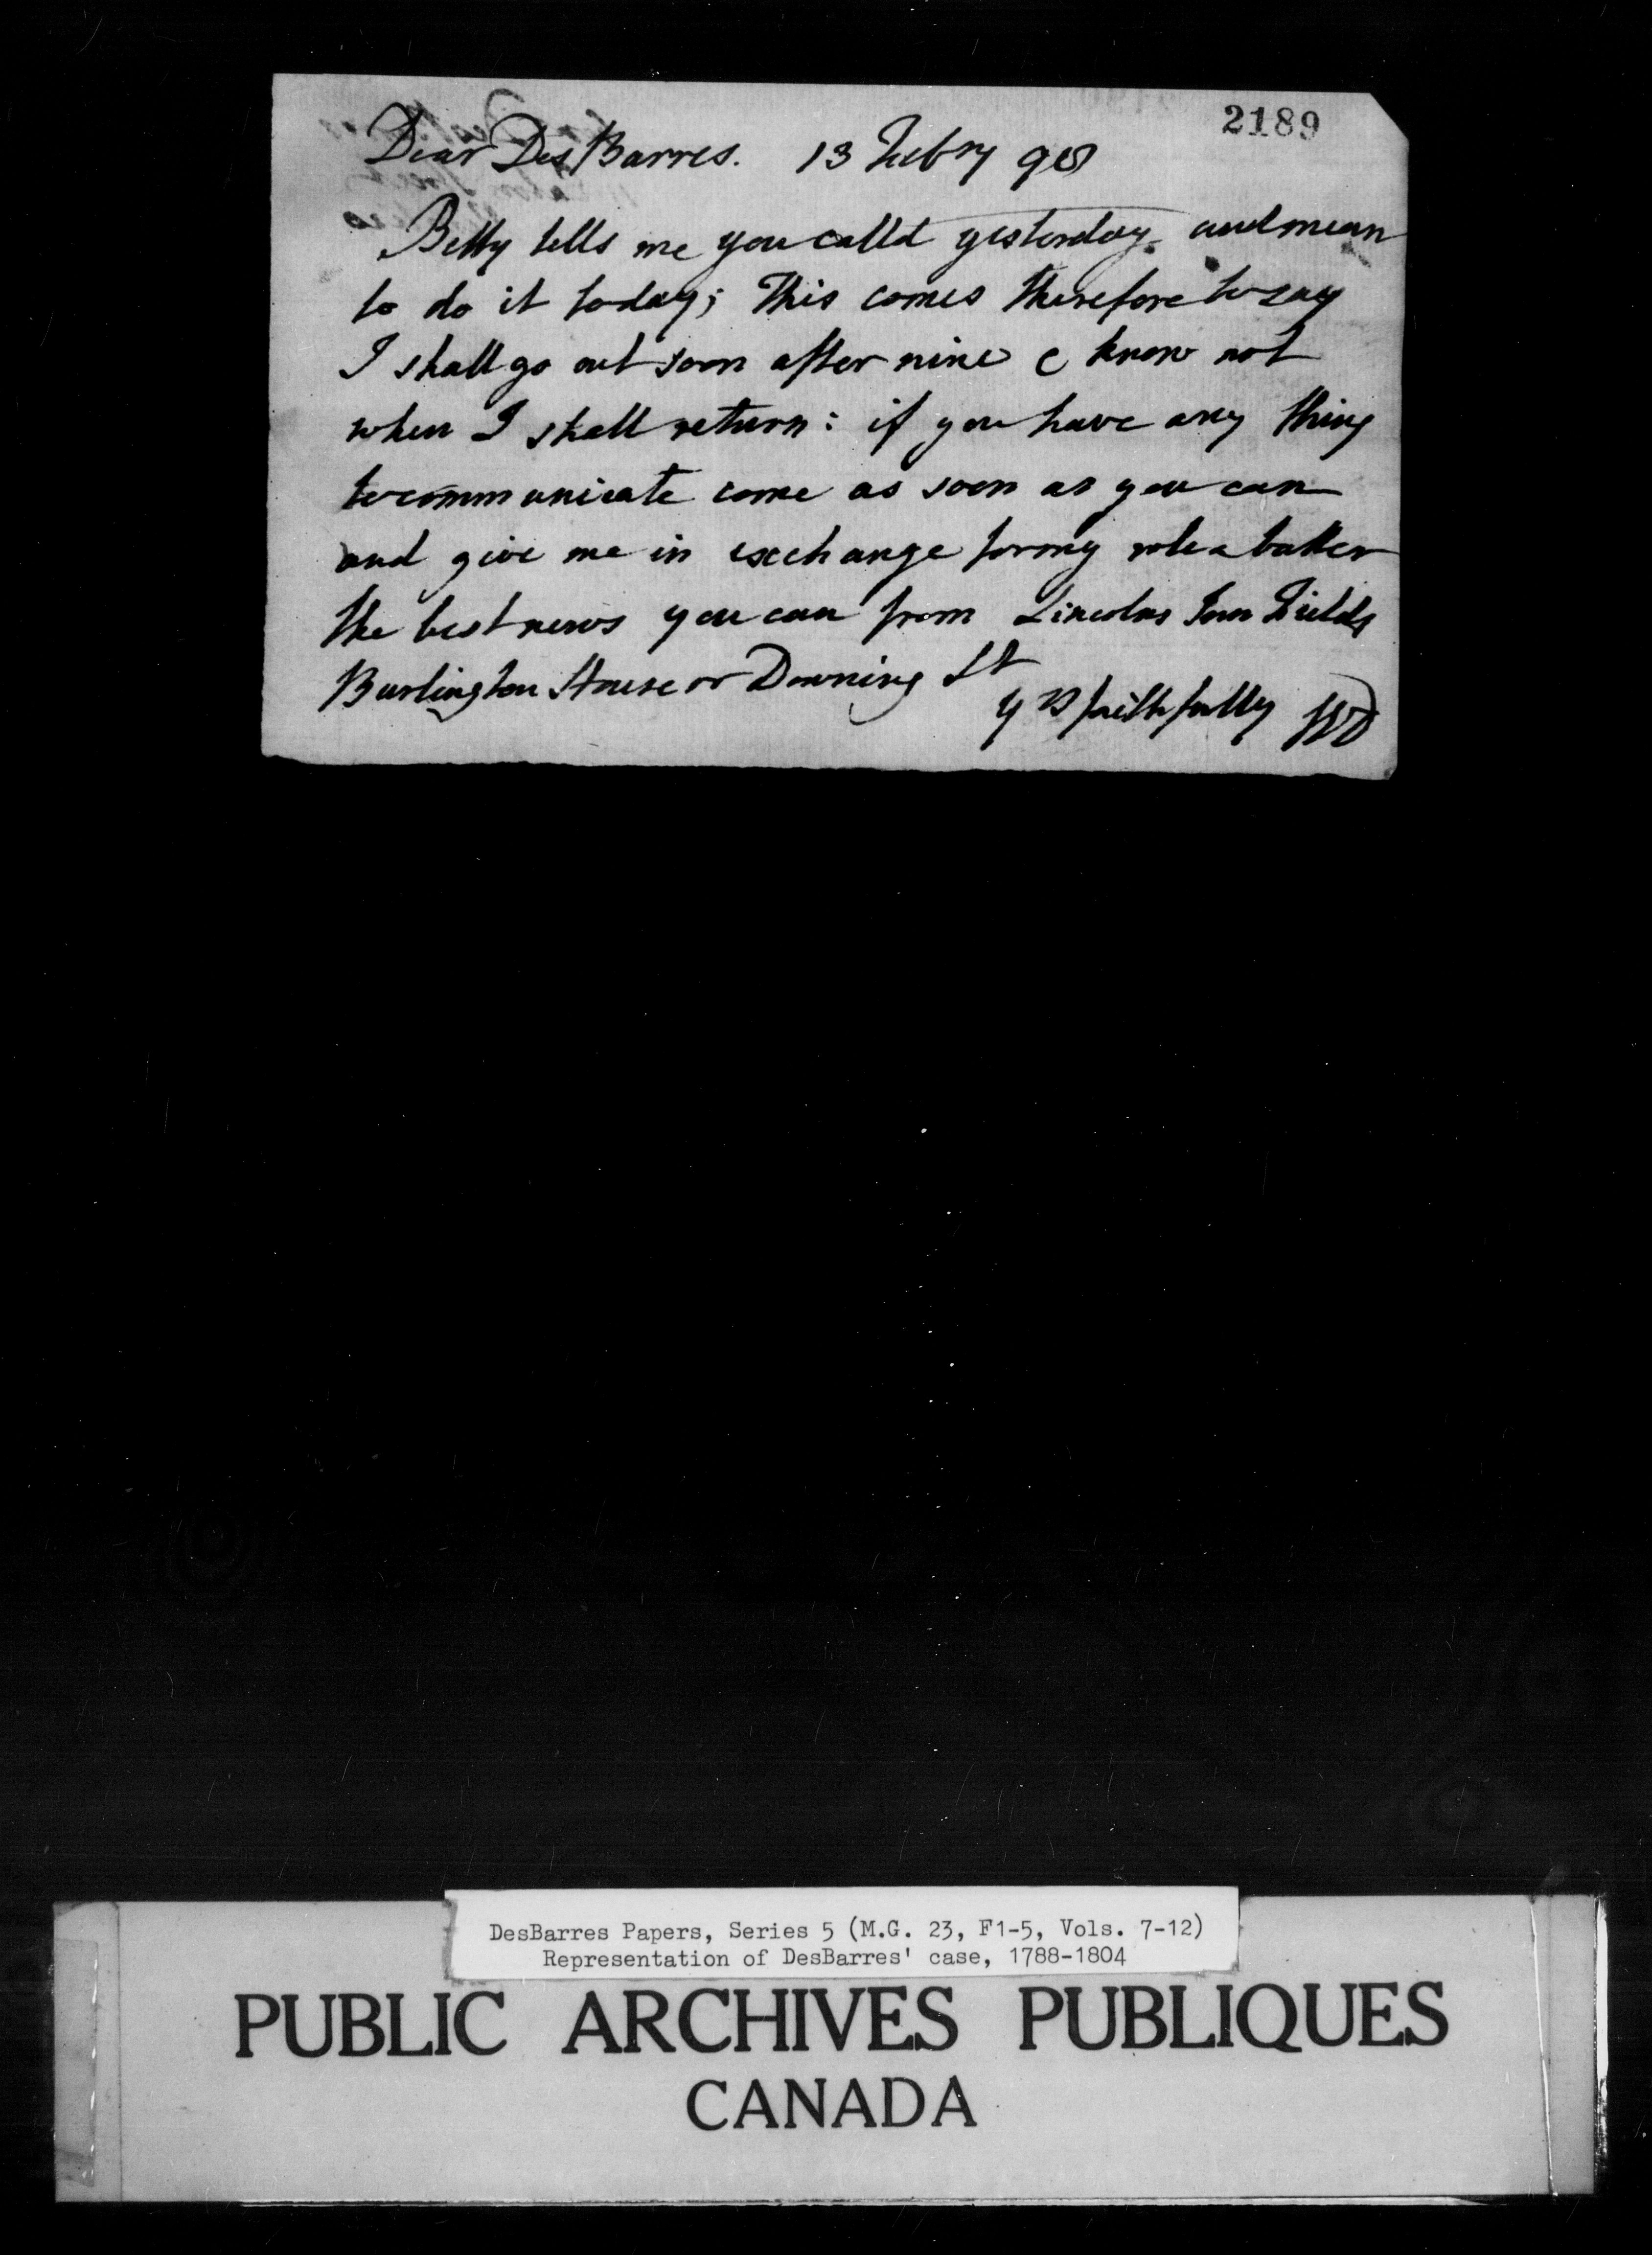 2189
Dear DesBarres. 13 Febry 98
Betty tells me you calld yesterday and mean
to do it today; This comes therefore to say
I shall go out soon after nine & know not
when I shall return: if you have any thing
to communicate come as soon as you can
and give me in exchange for my note a better
the best news you can from Lincolns Inn Fields
Burlington House or Downing St
yrs faithfully
DesBarres Papers, Series 5 (M.G. 23, F1-5, Vols. 7-12)
Representation of DesBarres' case, 1788-1804
PUBLIC ARCHIVES PUBLIQUES
CANADA